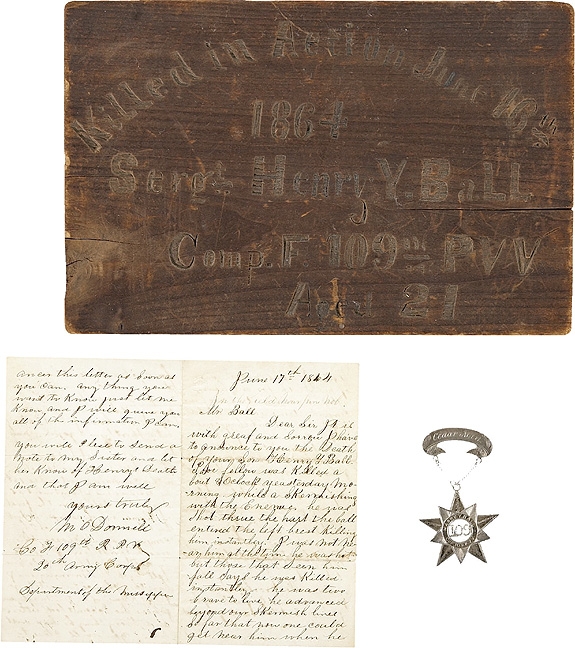 Killed in Action June 16th
1864
Sergt Henry Y. Ball
Comp. F 109th PVV
Aged 21
anser this letter as Soon as
you Can. any thing you
want to Know just let me
Know and I will give you
all of the information I can
you will please to send a
note to my Sister and let
her Know of Henrys Death
and that I am well
yours truly
M. O Donnell
Co F 109th R.P.V.
20th Army Corps
Department of the
June 17th 1864
Mr Ball
Dear Sir It is
with greaf and sorrow I have
to anounce to you the Death
of your Son Henry Y Ball
fellow was Killed a
bout o Clock yeasterday Mo-
rning while a Skermishing
with the Enemy. he was
Shot thrue the hart the ball
entered the left brest Killing
him instantley. I was not ne
ar him at the time he was shot
but those that Seen him
fall Says he was Killed
instantley he was two
brave to live, he advanced
beyond our Skermish lines
So far that now one could
get near him when he
Cedar
109